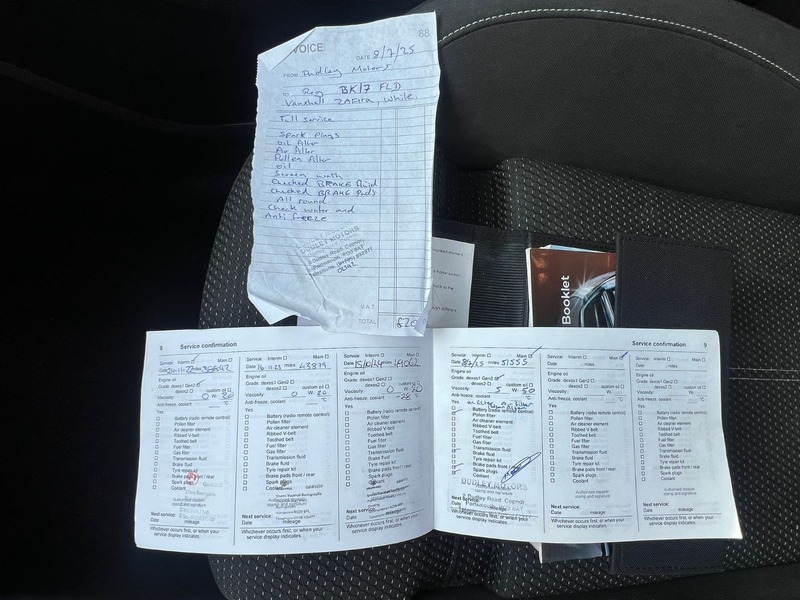 VOICE
88
DATE 8/7/25
FROM Dudley Motors
TO Reg BK17 FLD
Vauxhall ZAFIRA, While.
Full service
Spark Plugs
oil filter
Air filter
Pollen filter
oil
Screen wash
Checked BRAKE fluid
Checked BRAKE Pads
All round
Check water and
Anti freeze
DUDLEY MOTORS
V.A.T
TOTAL
Booklet
8 Service confirmation
Service Interim Main
miles
Engine oil
Grade: dexos1 Gen2
dexos2 custom oil
Viscosity: 0 W- 20
Anti-freeze, coolant °C
Yes
Battery (radio remote control)
Pollen filter
Air cleaner element
Ribbed V-belt
Toothed belt
Fuel filter
Gas filter
Transmission fluid
Brake fluid
Tyre repair kit
Brake pads front / rear
Spark plugs
Coolant
Next service:
Date mileage
Whichever occurs first, or when your
service display indicates.
Service Interim Main
Date 16.11.23 miles 43879
Engine oil
Grade: dexos1 Gen2
dexos2 custom oil
Viscosity: 0 W- 20
Anti-freeze, coolant °C
Yes
Battery (radio remote control)
Pollen filter
Air cleaner element
Ribbed V-belt
Toothed belt
Fuel filter
Gas filter
Transmission fluid
Brake fluid
Tyre repair kit
Brake pads front / rear
Spark plugs
Coolant
Next service:
Date mileage
Whichever occurs first, or when your
service display indicates.
Service Interim Main
Date 15/10/24 miles 49062
Engine oil
Grade: dexos1 Gen2
dexos2 custom oil
Viscosity: 0 W-
Anti-freeze, coolant -28 °C
Yes
Battery (radio remote control)
Pollen filter
Air cleaner element
Ribbed V-belt
Toothed belt
Fuel filter
Gas filter
Transmission fluid
Brake fluid
Tyre repair kit
Brake pads front / rear
Spark plugs
Coolant
Next service:
Date mileage
Whichever occurs first, or when your
service display indicates.
Service confirmation 9
Service Interim Main
Date 8/7/25 miles 51555
Engine oil
Grade: dexos1 Gen2
dexos2 custom oil
Viscosity: W-
Anti-freeze, coolant °C
Yes
Battery (radio remote control)
Pollen filter
Air cleaner element
Ribbed V-belt
Toothed belt
Fuel filter
Gas filter
Transmission fluid
Brake fluid
Tyre repair kit
Brake pads front / rear
Spark plugs
Coolant
DUDLEY MOTORS
stamp and signature
Dudley Road, Copnor
Next service:
Date mileage
Whichever occurs first, or when your
service display indicates.
Service Interim Main
Date miles
Engine oil
Grade: dexos1 Gen2
dexos2 custom oil
Viscosity: W-
Anti-freeze, coolant °C
Yes
Battery (radio remote control)
Pollen filter
Air cleaner element
Ribbed V-belt
Toothed belt
Fuel filter
Gas filter
Transmission fluid
Brake fluid
Tyre repair kit
Brake pads front / rear
Spark plugs
Coolant
Authorised repairer
stamp and signature
Next service:
Date mileage
Whichever occurs first, or when your
service display indicates.
Service Interim Main
Date miles
Engine oil
Grade: dexos1 Gen2
dexos2 custom oil
Viscosity: W-
Anti-freeze, coolant °C
Yes
Battery (radio remote control)
Pollen filter
Air cleaner element
Ribbed V-belt
Toothed belt
Fuel filter
Gas filter
Transmission fluid
Brake fluid
Tyre repair kit
Brake pads front / rear
Spark plugs
Coolant
Authorised repairer
stamp and signature
Next service:
Date mileage
Whichever occurs first, or when your
service display indicates.